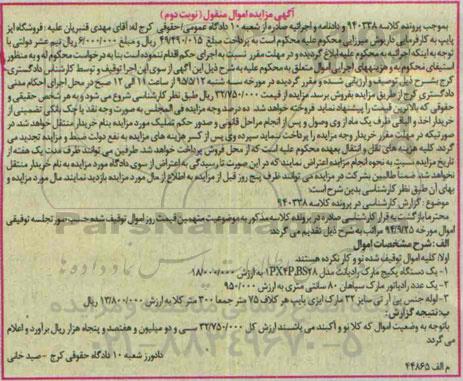 آگهی مزایده اموال منقول (نوبت دوم)
بموجب پرونده کلاسه ۹۴۰۳۳۸ و دادنامه و اجرائیه صادره از شعبه ۱۰ دادگاه عمومی/حقوقی کرج له: آقای مهدی قنبریان علیه: فروشگاه ایز
پایپ به کارفرمایی داریوش میرزایی محکوم علیه محکوم است به پرداخت مبلغ ریال و مبلغ ۶/۰۰۰/۰۰۰ ریال نیم عشر دولتی با
توجه به اینکه اجرائیه به محکوم علیه ابلاغ گردیده و در مهلت مقرر نسبت به اجرای حکم اقدام ننموده است بنا به درخواست محکوم له و به منظور
استیفای محکوم به و هزینه‎های اجرایی اموال متعلق به محکوم علیه به شرح ذیل این آگهی از سوی این اجرا توقیف و توسط کارشناس دادگستری
کرج به شرح ذیل توصیف و ارزیابی شده و مقرر گردیده در مورخه ۹۵/۷/۱۲ از ساعت ۱۱ الی ۱۲ صبح در محل اجرای احکام مدنی
دادگستری کرج از طریق مزایده به فروش برسد. مزایده از قیمت ۳۲/۷۵۰/۰۰۰ ریال طبق نظر کارشناسی شروع می شود و به هر شخص حقیقی و
حقوقی که بالاترین قیمت را پیشنهاد نماید فروخته خواهد شد. ده درصد وجه مزایده فی المجلس به صورت وجه نقد یا چک بانکی تضمینی از
خریدار اخذ و الباقی ظرف یک ماه از وی وصول و پس از انجام مراحل قانونی و صدور حکم تملیک مورد مزایده به نام خریدار منتقل خواهد شد. در
صورتیکه در مهلت مقرر خریدار وجه مزایده را پرداخت ننماید سپرده وی پس از کسر هزینه های مزایده به نفع دولت ضبط و مزایده تجدید می
گردد. کلیه هزینه های نقل و انتقال بعهده محکوم علیه است که از محل فروش پرداخت خواهد شد. طرفین می توانند ظرف مدت یک هفته از
تاریخ مزایده نسبت به نحوه انجام مزایده اعتراض نمایند که در این صورت تا رسیدگی به اعتراض از سوی دادگاه مورد مزایده به نام خریدار منتقل
نخواهد شد. ضمناً طالبین شرکت در مزایده می توانند ظرف پنج روز قبل از مزایده به اطلاع از مال مورد مزایده بازدید نمایند. مال مورد مزایده و
بهای آن طبق نظر کارشناسی بدین شرح است:
موضوع: گزارش کارشناسی در پرونده کلاسه ۹۴۰۳۳۸
محترما بازگشت به قرار کارشناسی صادره در پرونده کلاسه مذکور به موضوعیت متهمین قیمت روز اموال توقیف شده حسب صورتجلسه توقیفی
اموال مورخه ۹۴/۹/۲۵ مراتب به شرح ذیل تقدیم می گردد
الف: شرح مشخصات اموال
اولا: کلیه اموال توقیف شده نو و کار نکرده هستند.
۱- یک دستگاه پکیج مارک رادیانت مدل به ارزش ۱۸/۰۰۰/۰۰۰
۲- یک عدد رادیاتور مارک سپاهان ۸۰ سانتی متری به ارزش ۹۵۰/۰۰۰
۳- لوله جنس پی ار تی سایز ۳۲ مارک ایزی پایپ هر کلاف ۷۵ متر جمعا ۳۰۰ متر کلا به ارزش ۱۳/۸۰۰/۰۰۰ ریال
ب: نتیجه گزارش:
باتوجه به وضعیت اموال که کلا نو و آکبند می باشند ارزش کل ۳۲/۷۵۰/۰۰۰ سی و دو میلیون و هفتصد و پنجاه هزار ریال برآورد و اعلام
می گردد
دادورز شعبه ۱۰ دادگاه حقوقی کرج - صید خانی
م الف ۴۴۸۶۵
ParsNamadData
۰۲۱-۸۸۳۴۹۶۷۰-۵